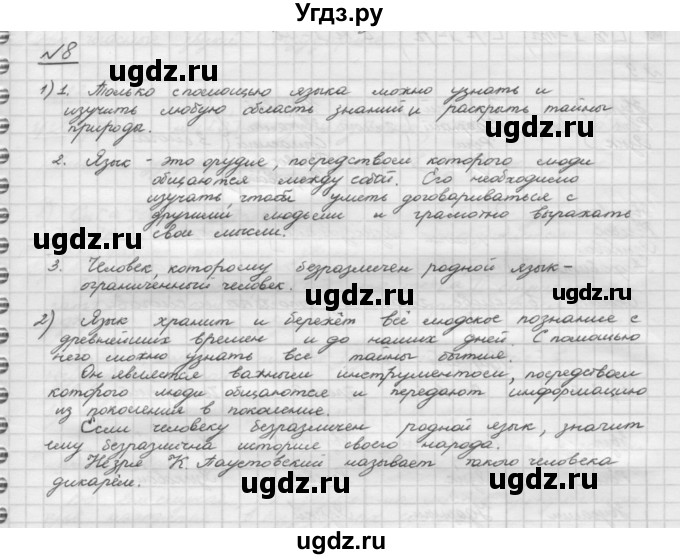 Угдз.ру
№8
1) 1. Только с помощью языка можно узнать и
изучить любую область знаний и раскрыть тайны
природы.
2. Язык - это орудие, посредством которого люди
общаются между собой. Его необходимо
изучать, чтобы уметь договариваться с
другими людьми и грамотно выражать
свои мысли.
3. Человек, которому безразличен родной язык -
ограниченный человек.
2) Язык хранит и бережёт всё людское познание с
древнейших времен и до наших дней. С помощью
него можно узнать все тайны бытия.
Он является важным инструментом, посредством
которого люди общаются и передают информацию
из поколения в поколение.
Если человеку безразличен родной язык, значит
ему безразлична история своего народа.
Незря К. Паустовский называет такого человека
дикарём.
ugdz.ru
ugdz.ru
ugdz.ru
ugdz.ru
ugdz.ru
ugdz.ru
ugdz.ru
ugdz.ru
ugdz.ru
ugdz.ru
ugdz.ru